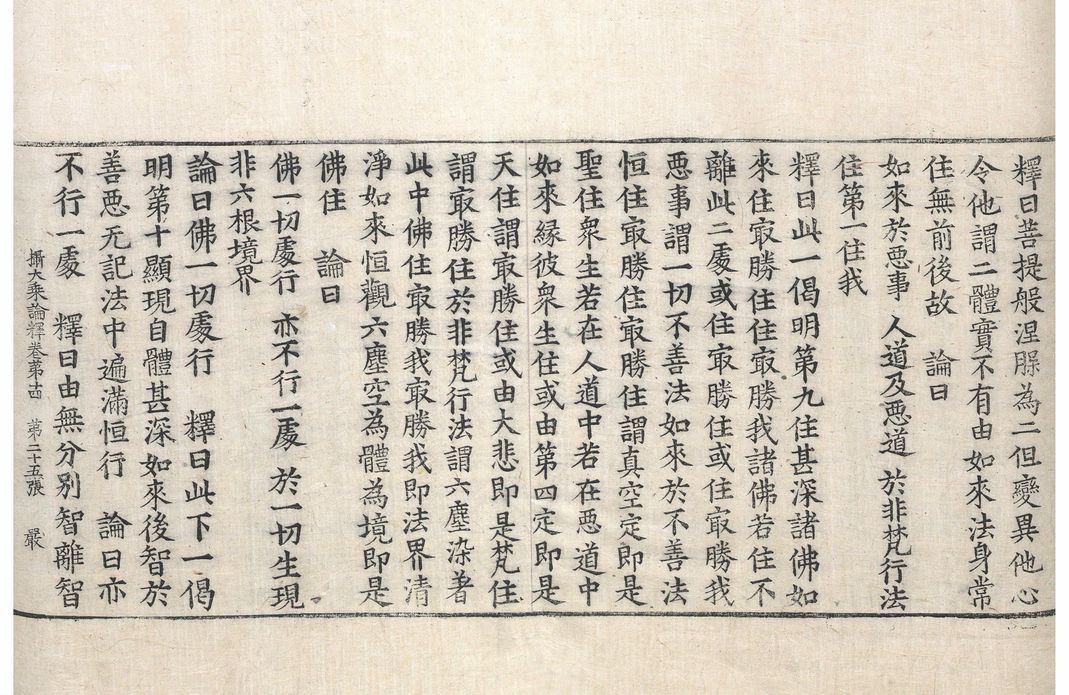 釋曰菩提般涅槃為二但變異他心
令他謂二體實不有由如來法身常
住無前後故 論曰
如來於惡事 人道及惡道 於非梵行法
住第一住我
釋曰此一偈明第九住甚深諸佛如
來住㝡勝住住㝡勝我諸佛若住不
離此二處或住㝡勝住或住㝡勝我
惡事謂一切不善法如來於不善法
恒住㝡勝住㝡勝住謂真空定即是
聖住衆生若在人道中若在惡道中
如來緣彼衆生住或由第四定即是
天住謂㝡勝住或由大悲即是梵住
謂㝡勝住於非梵行法謂六塵染著
此中佛住㝡勝我㝡勝我即法界清
淨如來恒觀六塵空為體為境即是
佛住 論曰
佛一切處行 亦不行一處 於一切生現
非六根境界
論曰佛一切處行 釋曰此下一偈
明第十顯現自體甚深如來後智於
善惡无記法中遍滿恒行 論曰亦
不行一處 釋曰由無分別智離智
攝大乘論釋卷第十四 第二十五張 嚴